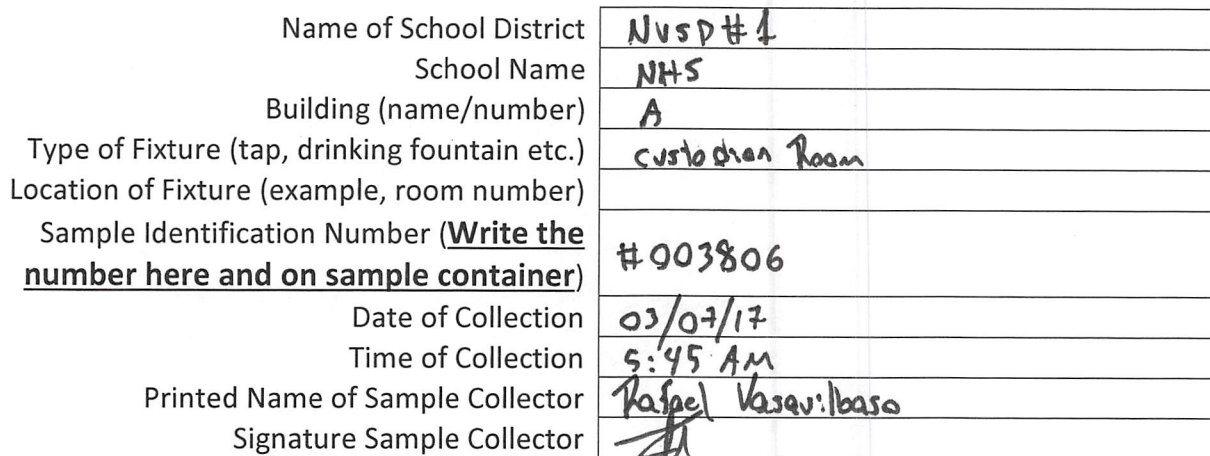 Name of School District NVSD#1
School Name NHS
Building (name/number) A
Type of Fixture (tap, drinking fountain etc.) custodian Room
Location of Fixture (example, room number)
Sample Identification Number (Write the
number here and on sample container) #003806
Date of Collection 03/07/17
Time of Collection 5:45 AM
Printed Name of Sample Collector Rafael Vasquilbaso
Signature Sample Collector